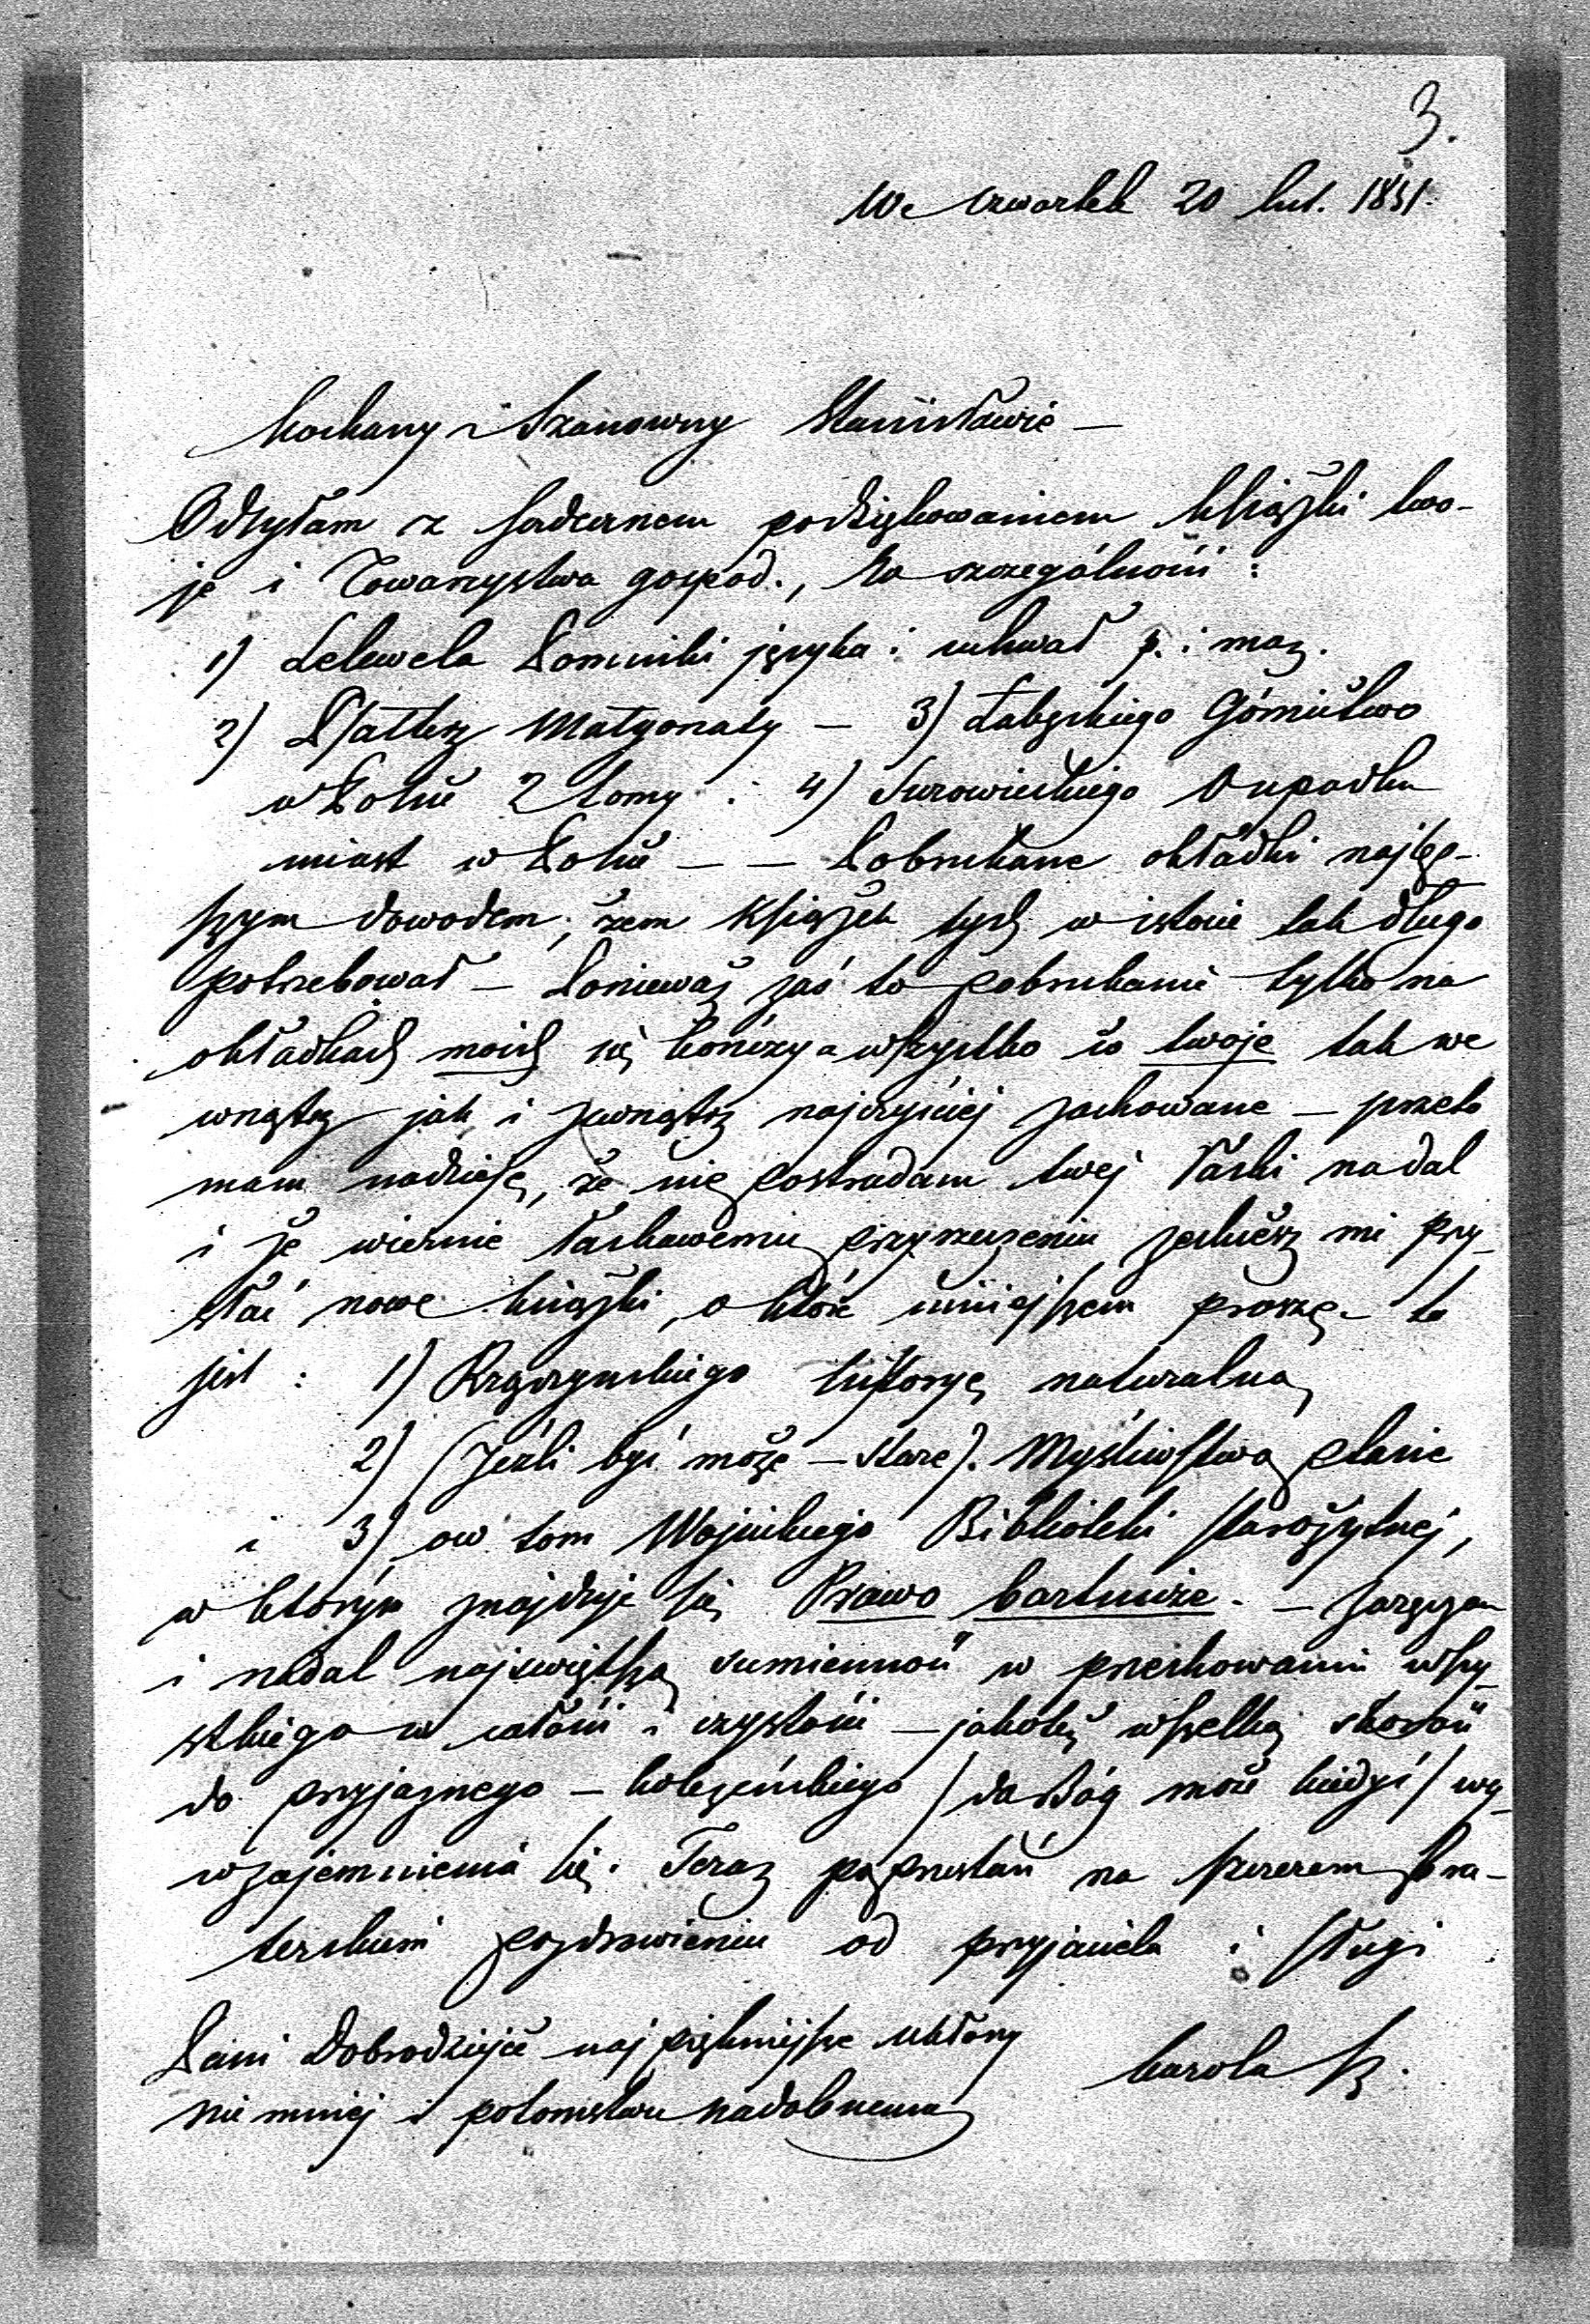 3.
We czwartek 20 lut. 1851.
Kochany i Szanowny Stanisławie —
Odsyłam z serdecznem podziękowaniem książki two-
je i Towarzystwa gospod., w szczególności:
1) Lelewela Pomniki języka i uchwał p. i maz.
2) Matgonaty — 3) Łabęckiego Górnictwo
w Polsce 2 tomy. 4) Surowieckiego O upadku
miast w Polsce — — Pobrukane okładki najlep-
szym dowodem, żem książek tych w istocie tak długo
potrzebował — Ponieważ zaś to pobrukanie tylko na
okładkach moich się kończy a wszystko co twoje tak we
wnątrz jak i zewnątrz najczyściej zachowane — przeto
mam nadzieję, że nie postradam twej łaski nadal
i że wiernie łaskawemu przyrzeczeniu zechcesz mi przy-
słać nowe książki, o które niniejszem proszę — to
jest: 1) Rzączyńskiego historyę naturalną
2) (Jeźli być może — stare). Myślistwo ptasie
i 3) ow tom Wojcickiego Biblioteki starożytnej,
w którym znajduje się Prawo bartnicze. — Zaręczam
i nadal najświętszą sumienność w przechowaniu wszy-
stkiego w całości i czystości — jakoteż wszelką skorość
do przyjaznego — koleżeńskiego / da Bóg może kiedyś / wy-
wzajemnienia się. Teraz poprzestań na szczerem bra-
terskiem pozdrowieniu od przyjaciela i sługi
Karola Sz.
Pani Dobrodziejce najpiękniejsze ukłony
nie mniej i potomstwu nadobnemu